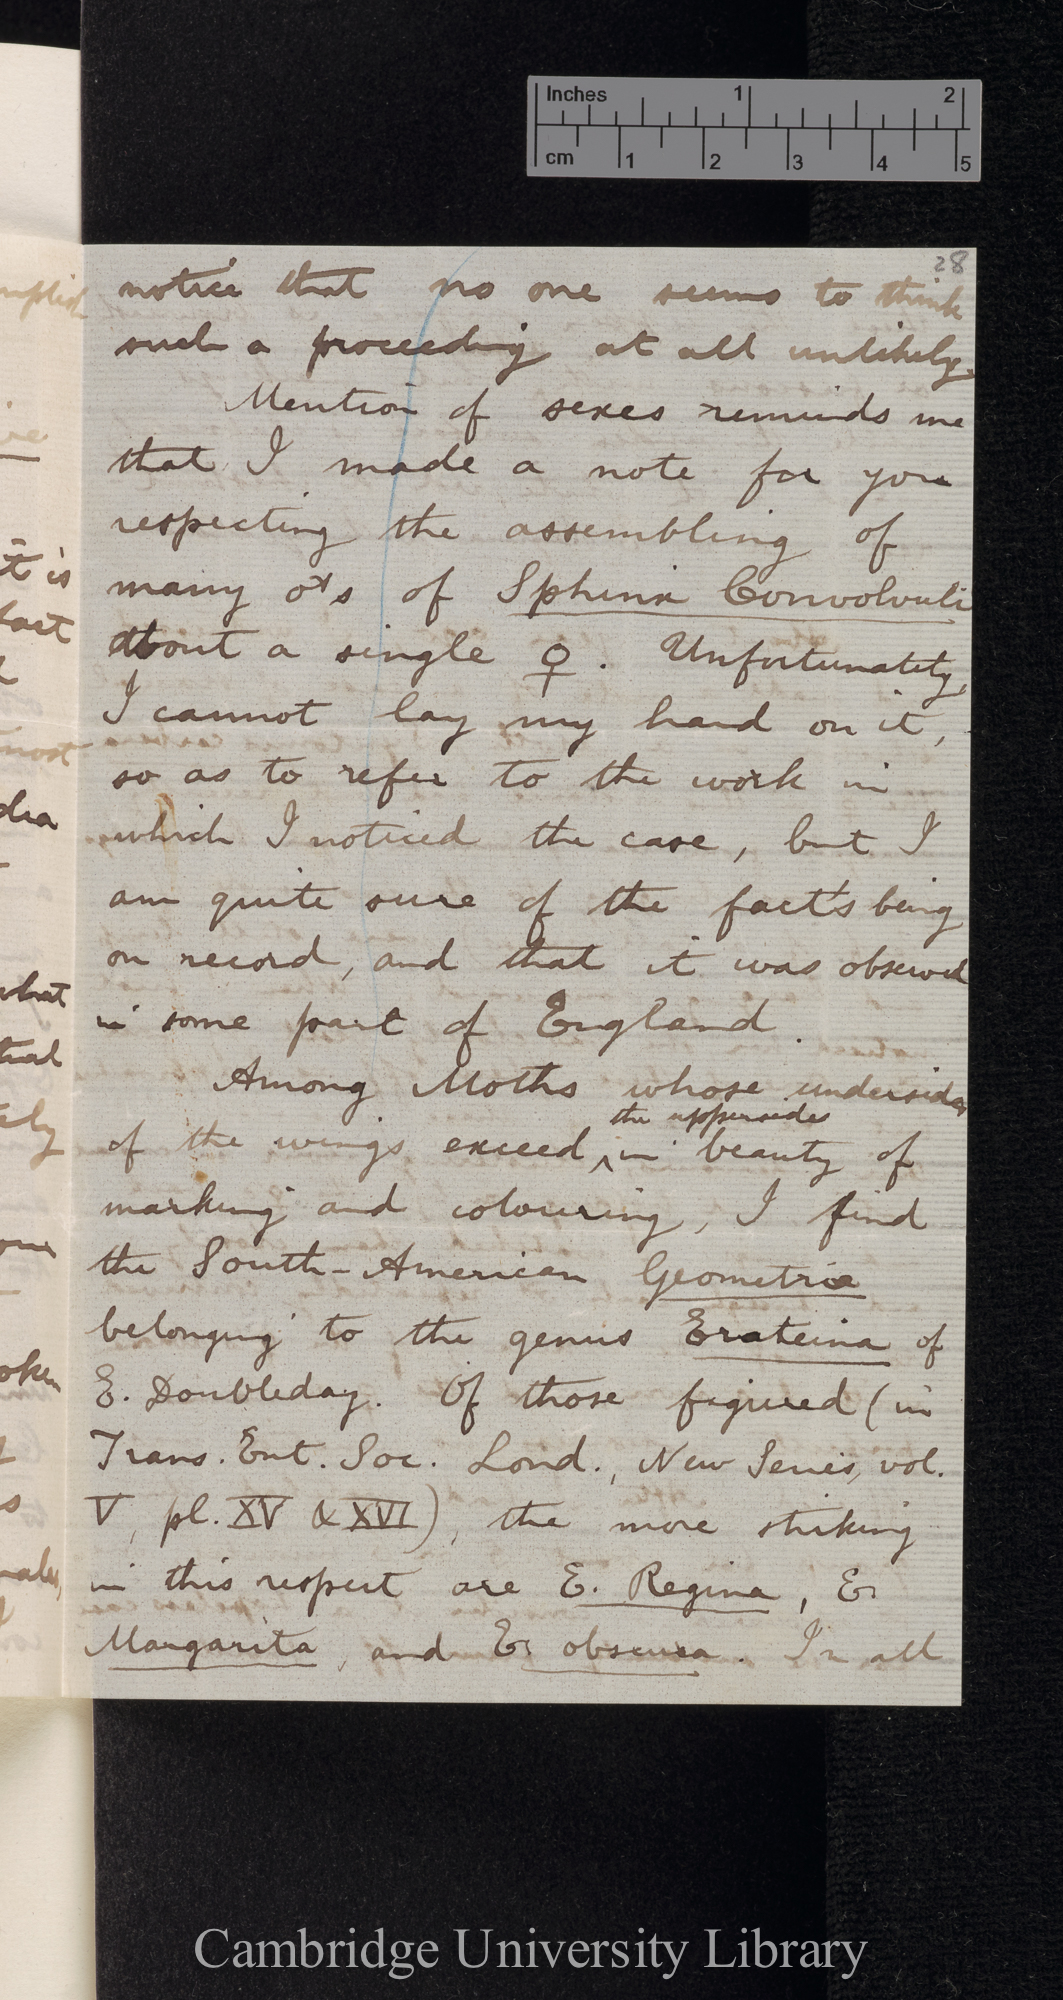 Inches 1 2
cm 1 2 3 4 5
28
notice that no one seems to think
such a proceeding at all unlikely.
Mention of sexes reminds me
that I made a note for you
respecting the assembling of
many ♂s of Sphinx Convolvuli
about a single ♀. Unfortunately,
I cannot lay my hand on it,
so as to refer to the work in
which I noticed the case, but I
am quite sure of the fact's being
on record, and that it was observed
in some part of England.
Among Moths whose undersides
the uppersides
of the wings exceed ^ in beauty of
marking and colouring, I find
the South-American Geometriæ
belonging to the genus Erateina of
E. Doubleday. Of those figured (in
Trans. Ent. Soc. Lond., New Series, vol.
V, pl. XV & XVI), the more striking
in this respect are E. Regina, E.
Margarita, and E. obscura. In all
it is
fact
most
what
oken
Cambridge University Library